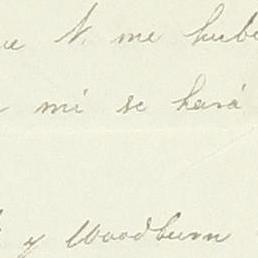 N. me hube
mí se hará
y Woodburn